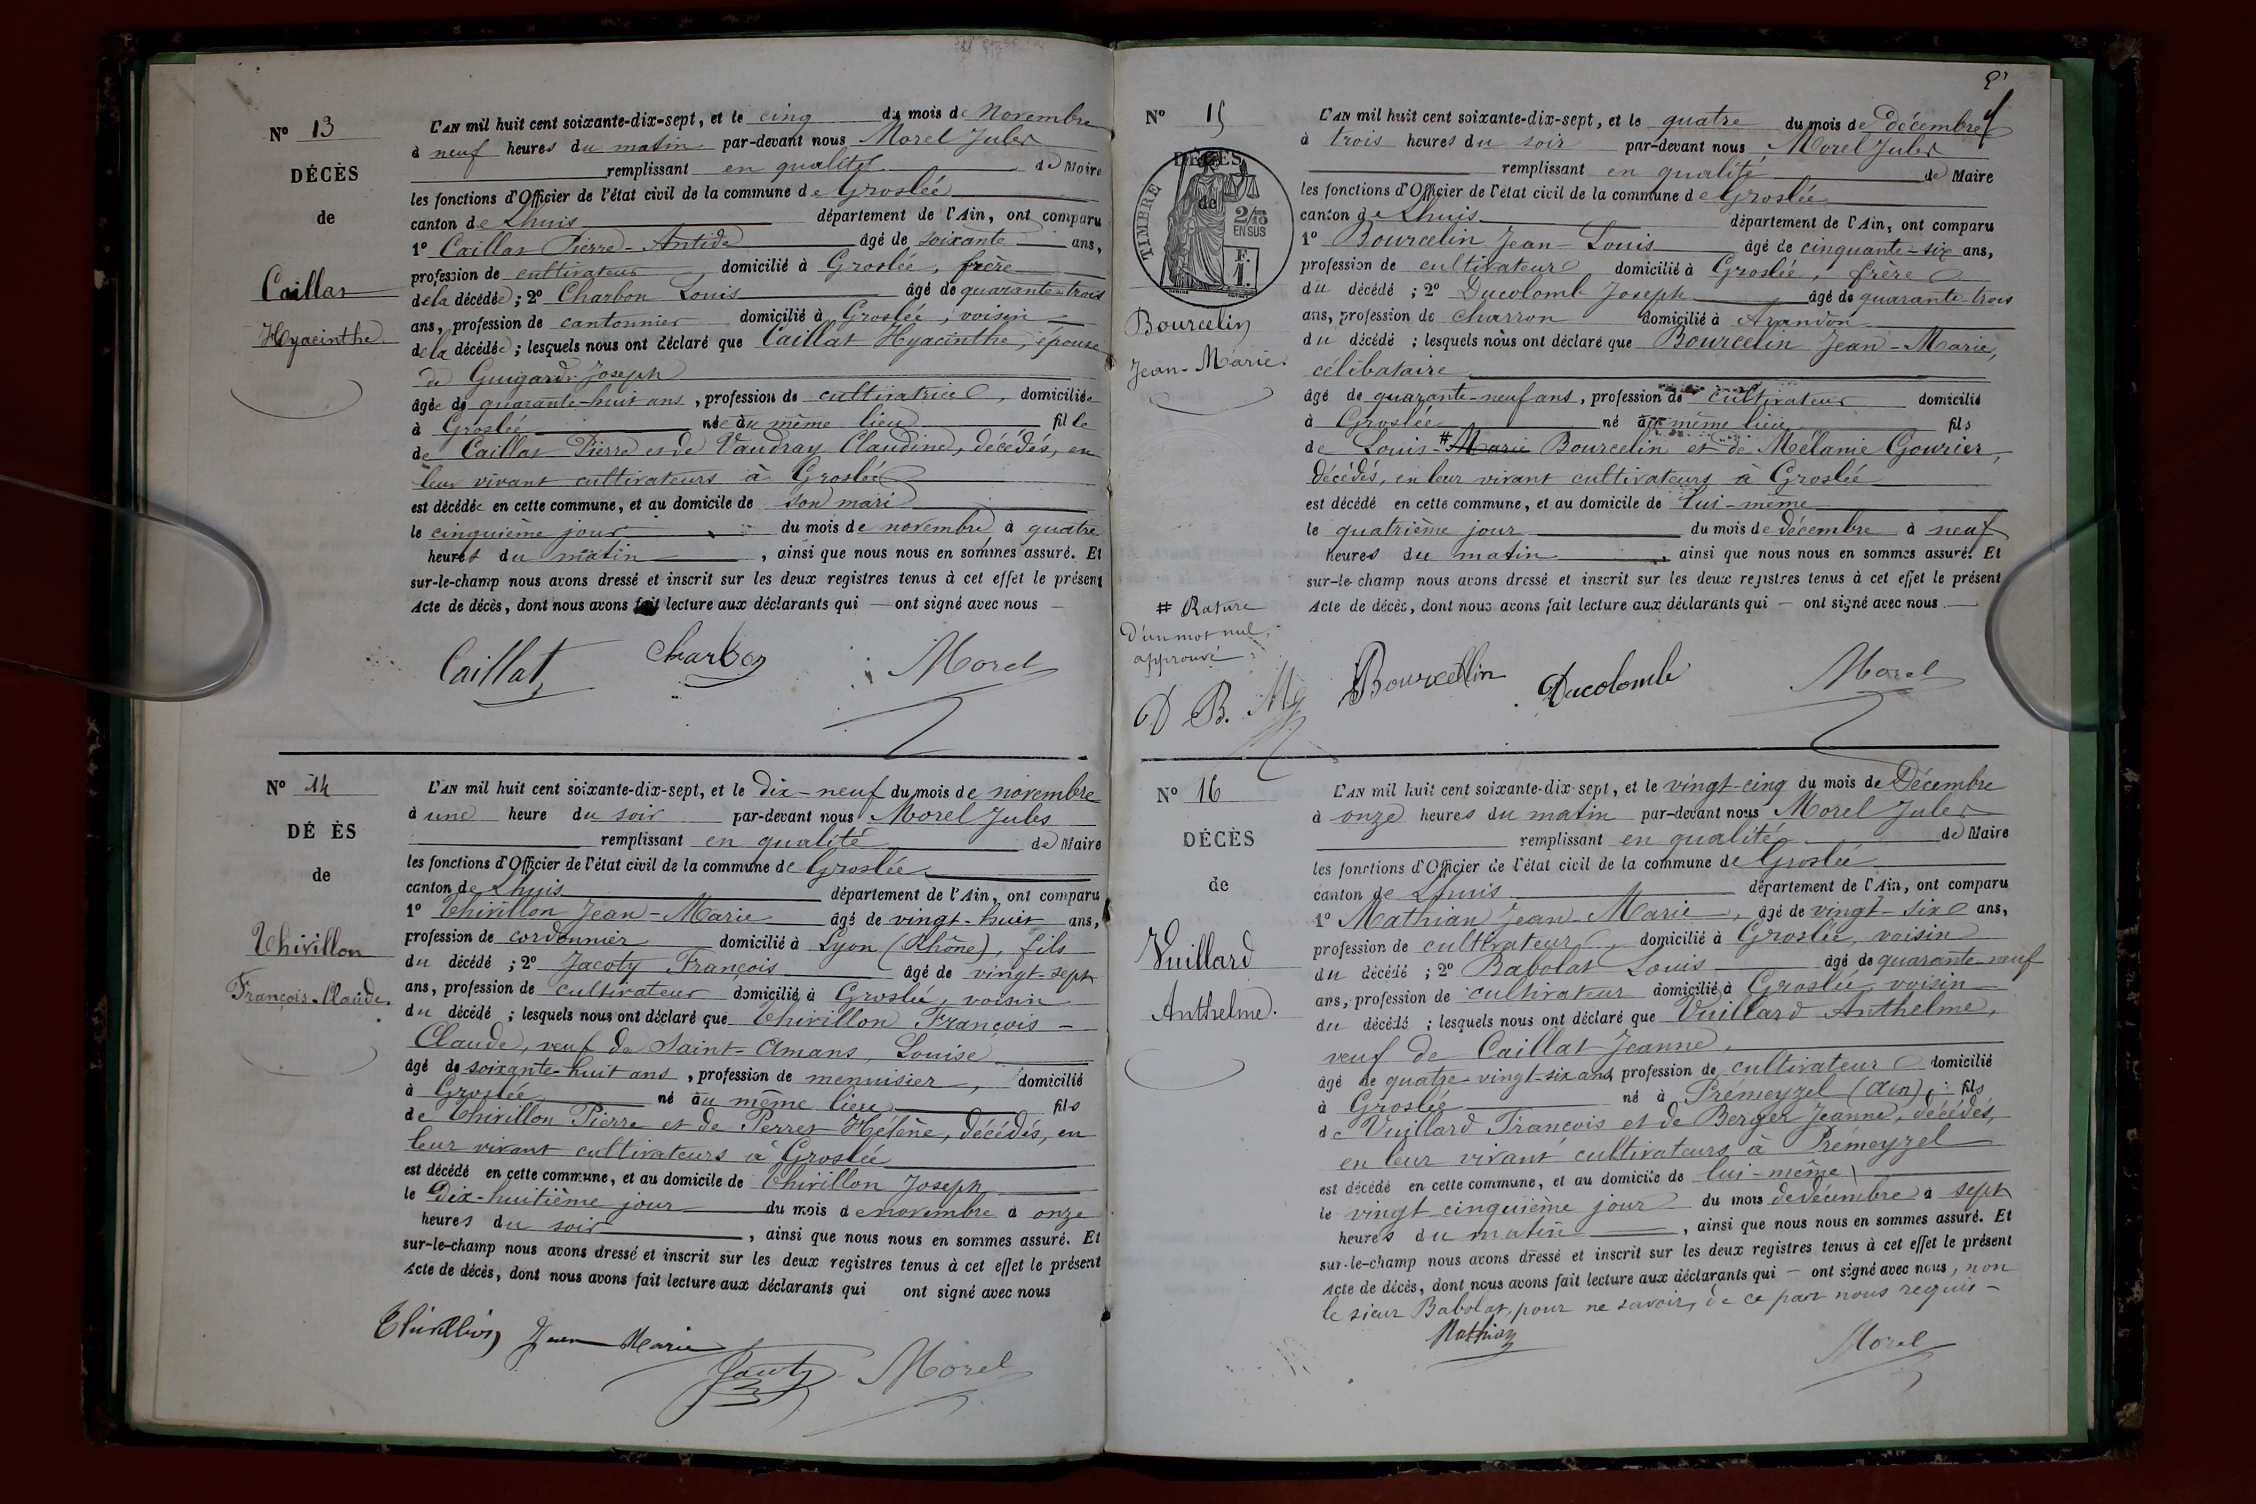 N° 13
DÉCÈS
de
Caillat
Hyacinthe
L'AN mil huit cent soixante-dix-sept, et le cinq du mois de Novembre
à neuf heures du matin par-devant nous Morel Jules
remplissant en qualité de Maire
les fonctions d'Officier de l'état civil de la commune de Groslée
canton de Lhuis département de l'Ain, ont comparu
1° Caillat Pierre-Antide âgé de soixante ans,
profession de cultivateur, domicilié à Groslée, frère
de la décédée ; 2° Charbon Louis âgé de quarante-trois
ans, profession de cantonnier domicilié à Groslée, voisin
de la décédée ; lesquels nous ont déclaré que Caillat Hyacinthe, épouse
de Guigard Joseph
âgée de quarante-huit ans, profession de cultivatrice, domiciliée
à Groslée née au même lieu fille
de Caillat Pierre et de Vaudray Claudine, décédés, en
leur vivant cultivateurs à Groslée
est décédée en cette commune, et au domicile de son mari
le cinquième jour du mois de novembre à quatre
heures du matin, ainsi que nous nous en sommes assuré. Et
sur-le-champ nous avons dressé et inscrit sur les deux registres tenus à cet effet le présent
Acte de décès, dont nous avons fait lecture aux déclarants qui — ont signé avec nous —
Caillat Charbon Morel
N° 14
DÉ ÈS
de
Thivillon
François-Claude.
L'AN mil huit cent soixante-dix-sept, et le dix-neuf du mois de novembre
à une heure du soir par-devant nous Morel Jules
remplissant en qualité de Maire
les fonctions d'Officier de l'état civil de la commune de Groslée
canton de Lhuis département de l'Ain, ont comparu
1° Thivillon Jean-Marie âgé de vingt-huit ans,
profession de cordonnier domicilié à Lyon (Rhône), fils
du décédé ; 2° Jacoty François âgé de vingt-sept
ans, profession de cultivateur domicilié à Groslée, voisin
du décédé ; lesquels nous ont déclaré que Thivillon François-
Claude, veuf de Saint-Amans, Louise
âgé de soixante-huit ans, profession de menuisier, domicilié
à Groslée né au même lieu fils
de Thivillon Pierre et de Perret Hélène, décédés, en
leur vivant cultivateurs à Groslée
est décédé en cette commune, et au domicile de Thivillon Joseph
le Dix-huitième jour du mois de novembre à onze
heures du soir, ainsi que nous nous en sommes assuré. Et
sur-le-champ nous avons dressé et inscrit sur les deux registres tenus à cet effet le présent
Acte de décès, dont nous avons fait lecture aux déclarants qui ont signé avec nous
Thivillion Jean Marie
Jacoty Morel
N° 15
DÉCÈS
de
TIMBRE
2/10
EN SUS
F.
1.
Bourcelin
Jean-Marie.
L'AN mil huit cent soixante-dix-sept, et le quatre du mois de décembre
à trois heures du soir par-devant nous Morel Jules
remplissant en qualité de Maire
les fonctions d'Officier de l'état civil de la commune de Groslée
canton de Lhuis département de l'Ain, ont comparu
1° Bourcelin Jean-Louis âgé de cinquante-six ans,
profession de cultivateur domicilié à Groslée, frère
du décédé ; 2° Ducolomb Joseph âgé de quarante-trois
ans, profession de charron domicilié à Arandon
du décédé ; lesquels nous ont déclaré que Bourcelin Jean-Marie,
célibataire
âgé de quarante-neuf ans, profession de cultivateur domicilié
à Groslée né au même lieu fils
de Louis-# Marie Bourcelin et de Mélanie Gourier,
décédés, en leur vivant cultivateurs à Groslée
est décédé en cette commune, et au domicile de lui-même
le quatrième jour du mois de décembre à neuf
heures du matin, ainsi que nous nous en sommes assuré. Et
sur-le-champ nous avons dressé et inscrit sur les deux registres tenus à cet effet le présent
Acte de décès, dont nous avons fait lecture aux déclarants qui — ont signé avec nous —
# Rature
d'un mot nul,
approuvé
D B. M
Bourcellin Ducolomb Morel
N° 16
DÉCÈS
de
Vuillard
Anthelme.
L'AN mil huit cent soixante-dix-sept, et le vingt-cinq du mois de Décembre
à onze heures du matin par-devant nous Morel Jules
remplissant en qualité de Maire
les fonctions d'Officier de l'état civil de la commune de Groslée
canton de Lhuis département de l'Ain, ont comparu
1° Mathian Jean-Marie, âgé de vingt-six ans,
profession de cultivateur, domicilié à Groslée, voisin
du décédé ; 2° Babolat Louis âgé de quarante-neuf
ans, profession de cultivateur domicilié à Groslée voisin
du décédé ; lesquels nous ont déclaré que Vuillard Anthelme,
veuf de Caillat Jeanne,
âgé de quatre-vingt-six ans, profession de cultivateur domicilié
à Groslée né à Prémeyzel (Ain), fils
de Vuillard François et de Berger Jeanne, décédés,
en leur vivant cultivateurs à Prémeyzel
est décédé en cette commune, et au domicile de lui-même
le vingt cinquième jour du mois de décembre à sept
heures du matin, ainsi que nous nous en sommes assuré. Et
sur-le-champ nous avons dressé et inscrit sur les deux registres tenus à cet effet le présent
Acte de décès, dont nous avons fait lecture aux déclarants qui — ont signé avec nous, non
le sieur Babolat, pour ne savoir, de ce par nous requis —
Mathian Morel